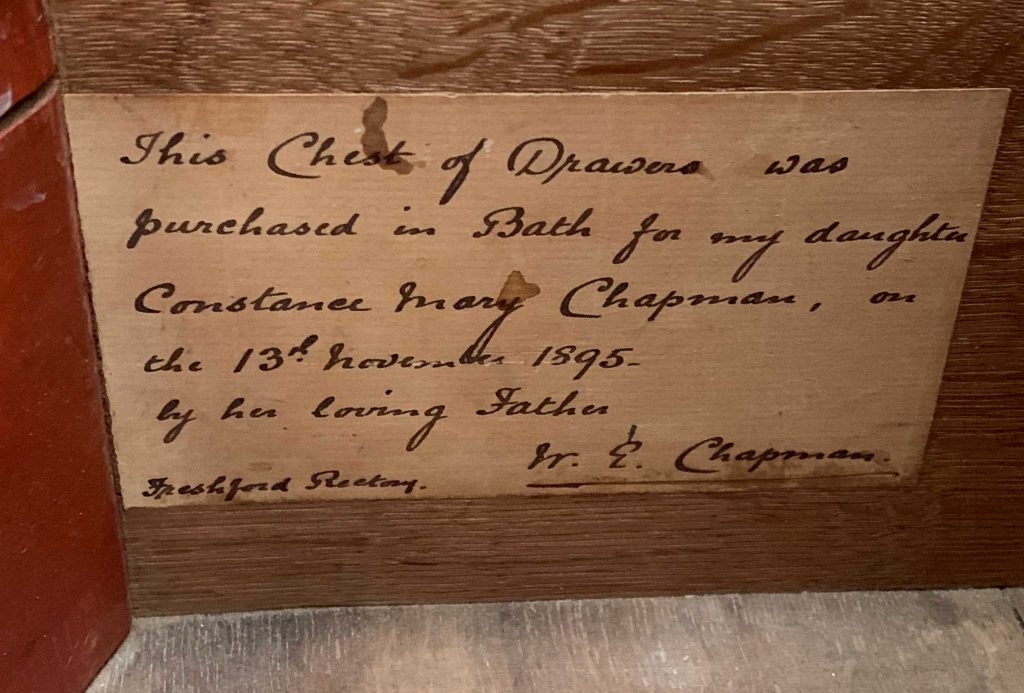 This Chest of Drawers was
purchased in Bath for my daughter
Constance Mary Chapman, on
the 13th November 1895-
by her loving Father
W. E. Chapman.
Freshford Rectory.